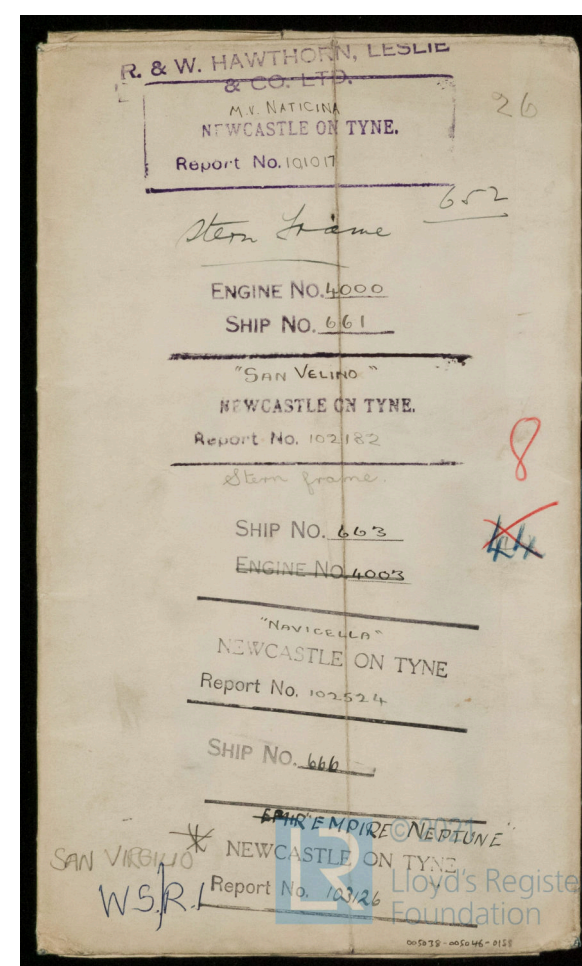 R. & W. HAWTHORN, LESLIE
& CO. LTD.
M.V. NATICINA
26
NEWCASTLE ON TYNE.
Report No. 101017
652
Stern Frame
ENGINE No. 4000
SHIP No. 661
"SAN VELINO"
NEWCASTLE ON TYNE.
Report No. 102182
8
Stern frame.
SHIP No. 663
44
ENGINE No. 4003
"NAVICELLA"
NEWCASTLE ON TYNE
Report No. 102524
SHIP No. 666
"EMPIRE NEPTUNE"
© 2021
SAN VIRGILIO
NEWCASTLE ON TYNE
Lloyd's Registe
W.S.R.1
Report No. 103126
LR
Foundation
005038-005046-0188